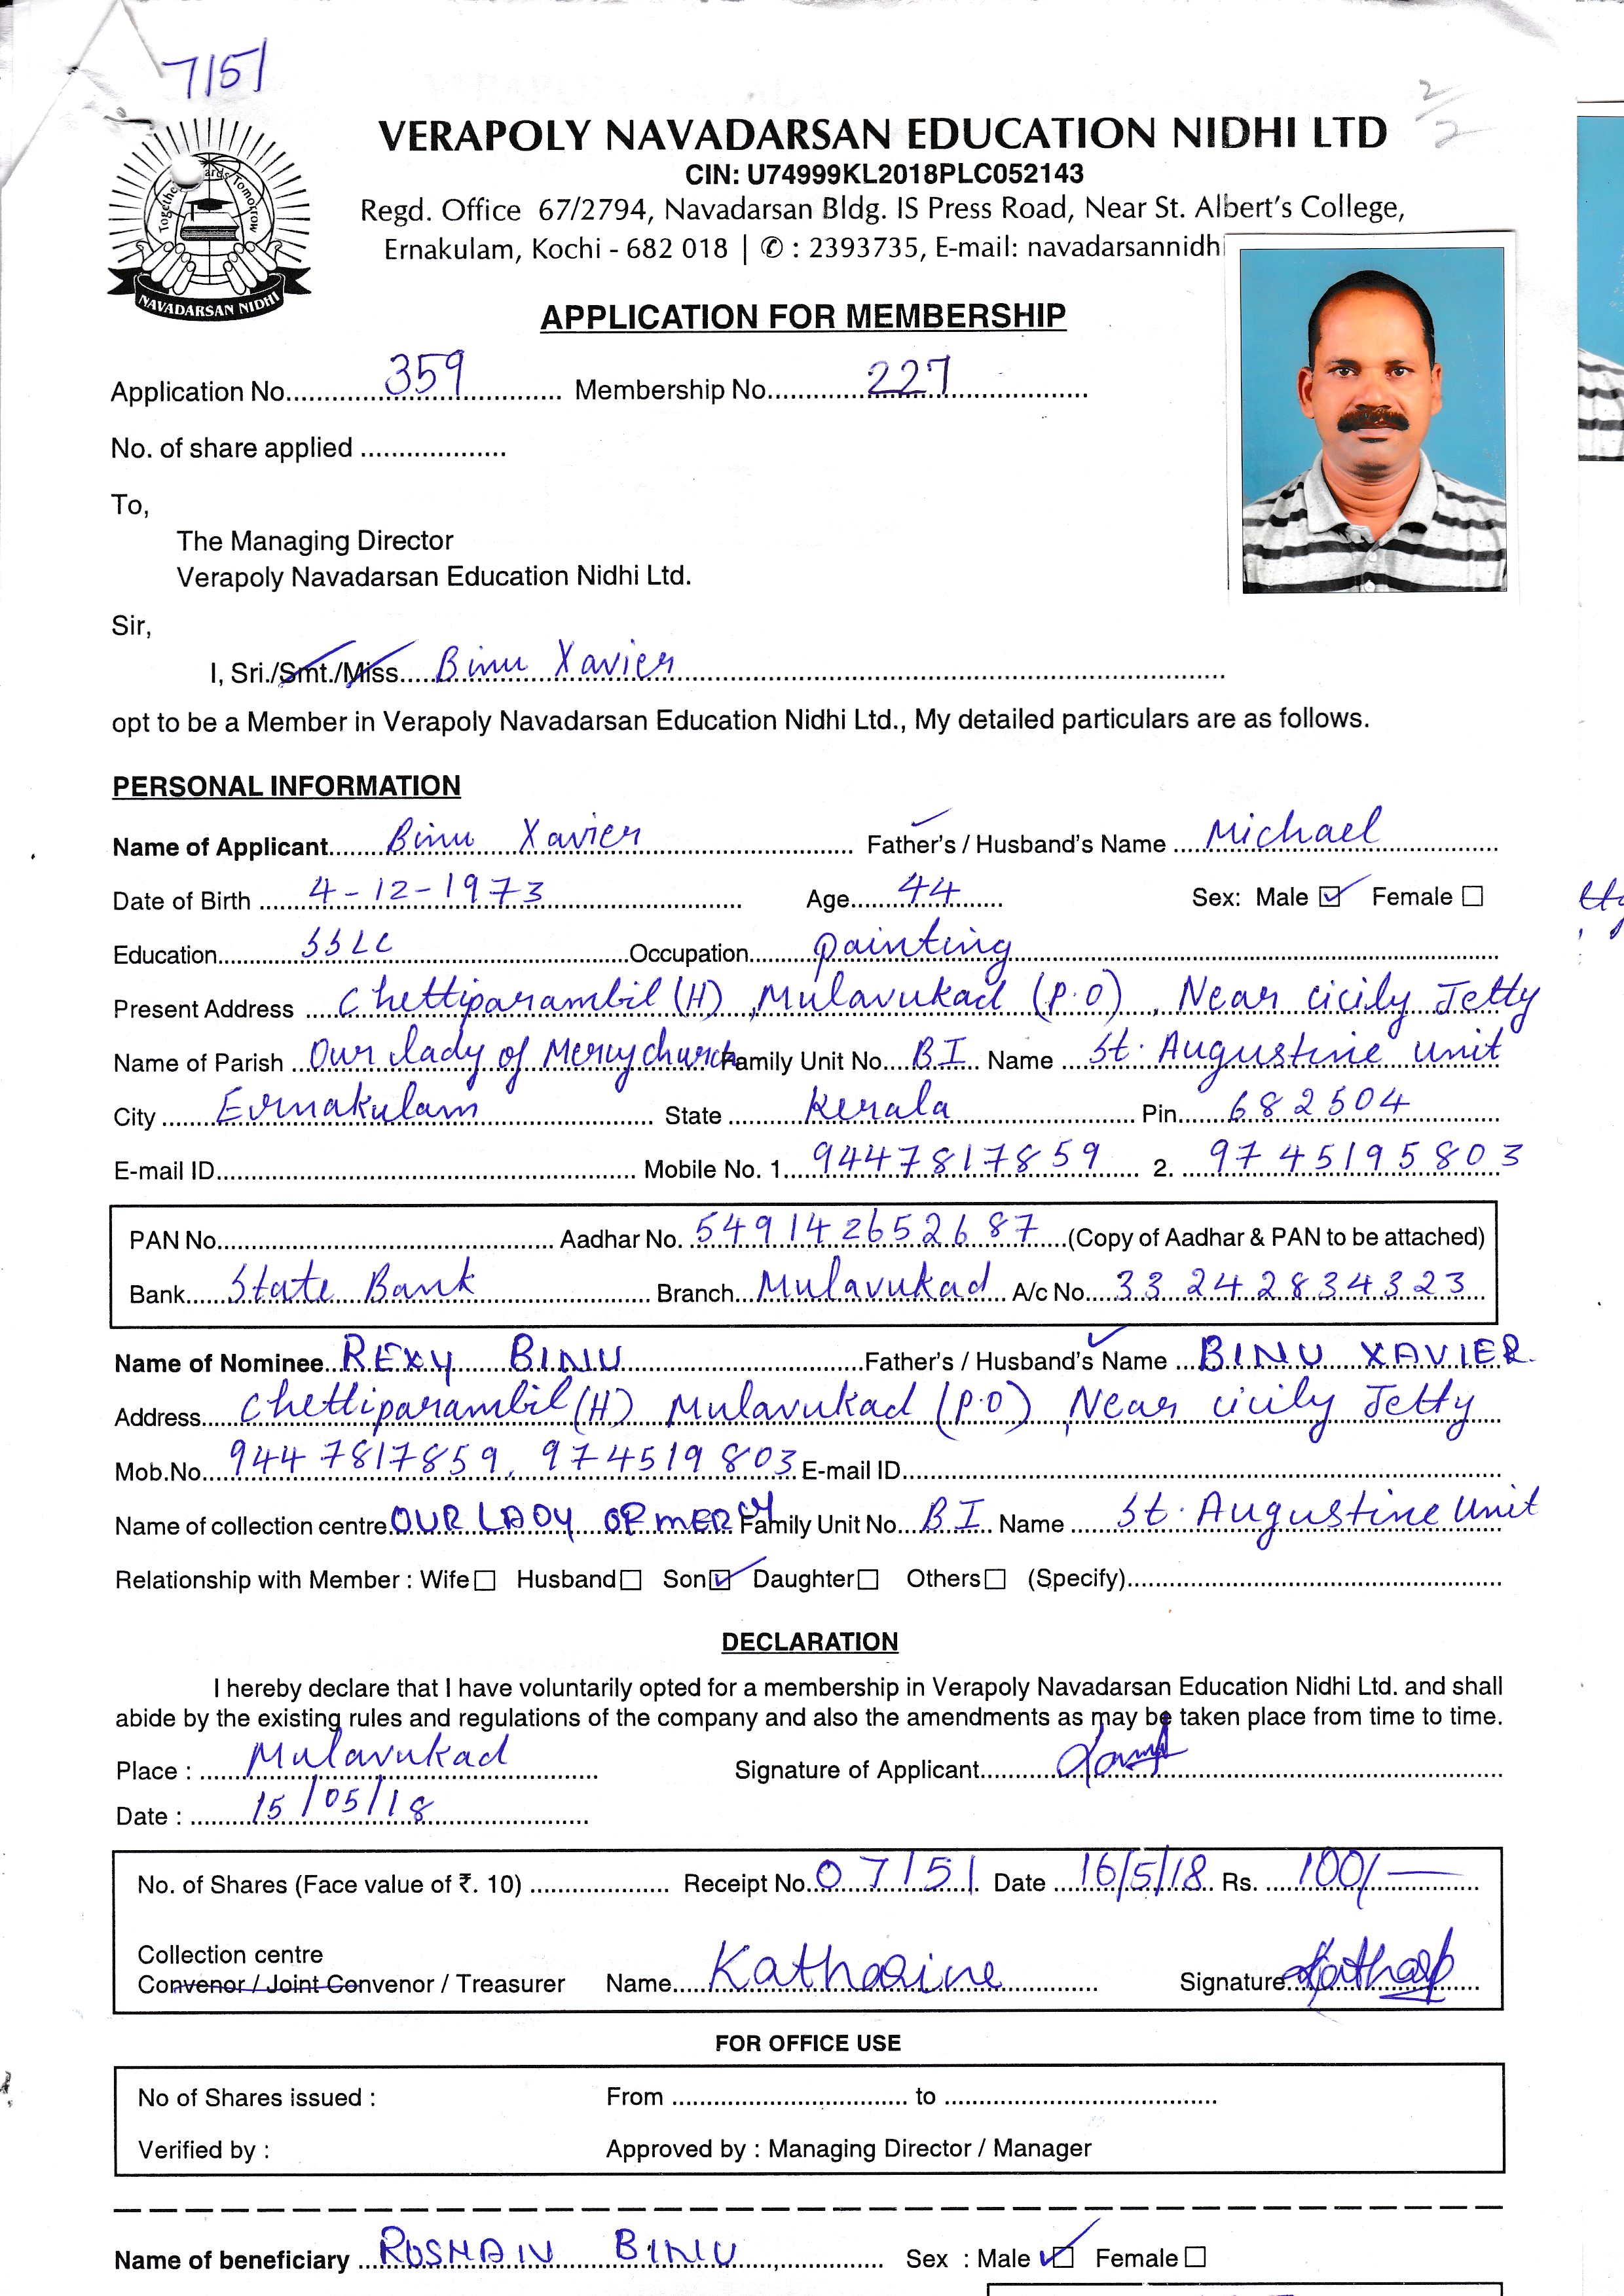 7151
2/2
VERAPOLY NAVADARSAN EDUCATION NIDHI LTD
CIN: U74999KL2018PLC052143
Regd. Office 67/2794, Navadarsan Bldg. IS Press Road, Near St. Albert's College,
Ernakulam, Kochi - 682 018 | ✆ : 2393735, E-mail: navadarsannidhi
Together Towards Tomorrow
NAVADARSAN NIDHI
APPLICATION FOR MEMBERSHIP
Application No. 359 Membership No. 227
No. of share applied
To,
The Managing Director
Verapoly Navadarsan Education Nidhi Ltd.
Sir,
I, Sri./Smt./Miss Binu Xavier
opt to be a Member in Verapoly Navadarsan Education Nidhi Ltd., My detailed particulars are as follows.
PERSONAL INFORMATION
Name of Applicant Binu Xavier Father's / Husband's Name Michael
Date of Birth 4-12-1973 Age 44 Sex: Male ☑ Female ☐
Education SSLC Occupation painting
Present Address Chettiparambil (H), Mulavukad (P.O), Near cicily Jetty
Name of Parish Our lady of Mercy church Family Unit No. BI Name St. Augustine unit
City Ernakulam State Kerala Pin 682504
E-mail ID Mobile No. 1. 9447817859 2. 9745195803
PAN No. Aadhar No. 549142652687 (Copy of Aadhar & PAN to be attached)
Bank State Bank Branch Mulavukad A/c No. 33242834323
Name of Nominee REXY BINU Father's / Husband's Name BINU XAVIER
Address Chettiparambil (H) Mulavukad (P.O), Near cicily Jetty
Mob.No. 9447817859, 974519803 E-mail ID
Name of collection centre OUR LADY OF MERCY Family Unit No. BI Name St. Augustine Unit
Relationship with Member : Wife ☐ Husband ☐ Son ☑ Daughter ☐ Others ☐ (Specify)
DECLARATION
I hereby declare that I have voluntarily opted for a membership in Verapoly Navadarsan Education Nidhi Ltd. and shall
abide by the existing rules and regulations of the company and also the amendments as may be taken place from time to time.
Place : Mulavukad Signature of Applicant
Date : 15/05/18
No. of Shares (Face value of ₹. 10) Receipt No. 07151 Date 16/5/18 Rs. 100/-
Collection centre
Convenor / Joint Convenor / Treasurer Name Katharine Signature
FOR OFFICE USE
No of Shares issued : From to
Verified by : Approved by : Managing Director / Manager
Name of beneficiary ROSHAN BINU Sex : Male ☑ Female ☐